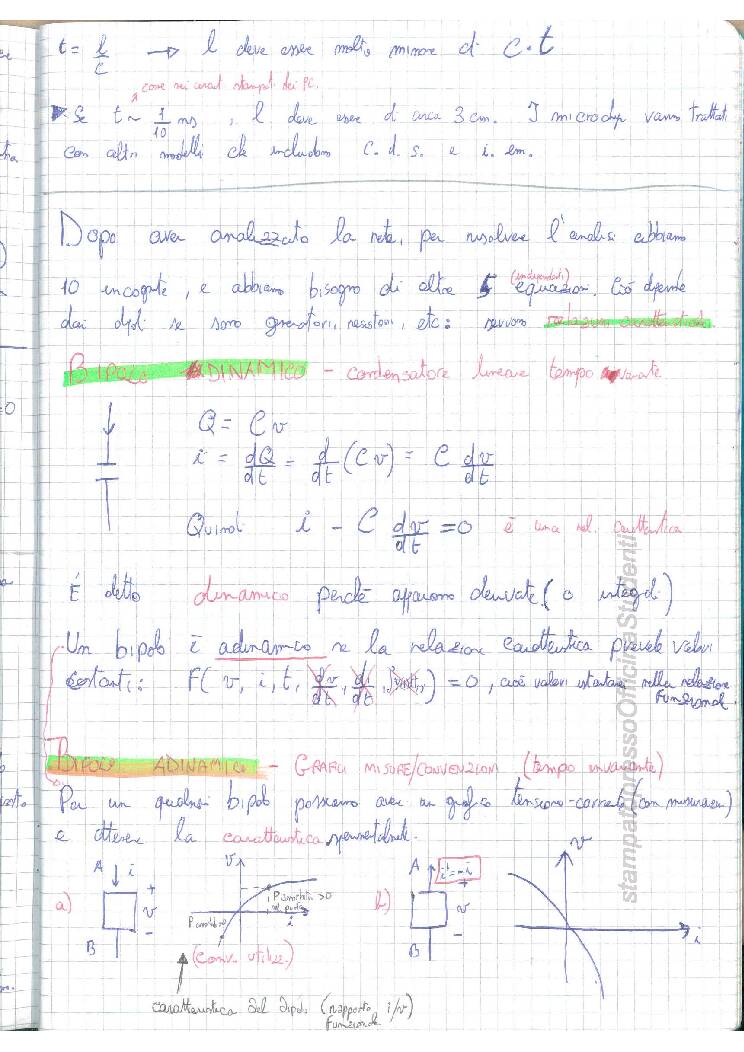 t = l/c → l deve essere molto minore di c·t
come nei circuiti stampati dei PC.
Se t ~ 1/10 ns, l deve essere di circa 3 cm. I microchip vanno trattati
con altri modelli che includono C. d. s. e i. em.
Dopo aver analizzato la rete, per risolvere l'analisi abbiamo
(indipendenti)
10 incognite, e abbiamo bisogno di altre 5 equazioni. Ciò dipende
dai dipoli se sono generatori, resistori, etc: servono relazioni caratteristiche.
BIPOLO DINAMICO - condensatore lineare tempo
Q = Cv
i = dQ/dt = d/dt (Cv) = C dv/dt
Quindi i - C dv/dt = 0 è una rel. caratteristica
È detto dinamico perché appaiono derivate (o integrali)
Un bipolo è adinamico se la relazione caratteristica prevede valori
costanti: F( v, i, t, dv/dt, di/dt, ) = 0, cioè valori istantanei nella relazione
funzionale.
BIPOLO ADINAMICO - GRAFICI MISURE/CONVENZIONI (tempo invariante)
Per un qualsiasi bipolo possiamo avere un grafico tensione-corrente (con misurazioni)
e ottenere la caratteristica sperimentalmente.
a) A i + v - B
v
P >0
i
(conv. utilizz.)
b) A i' = -i + v - B
v
i
caratteristica del dipolo (rapporto i/v)
funzionale
stampatopressoOfficinaStudenti